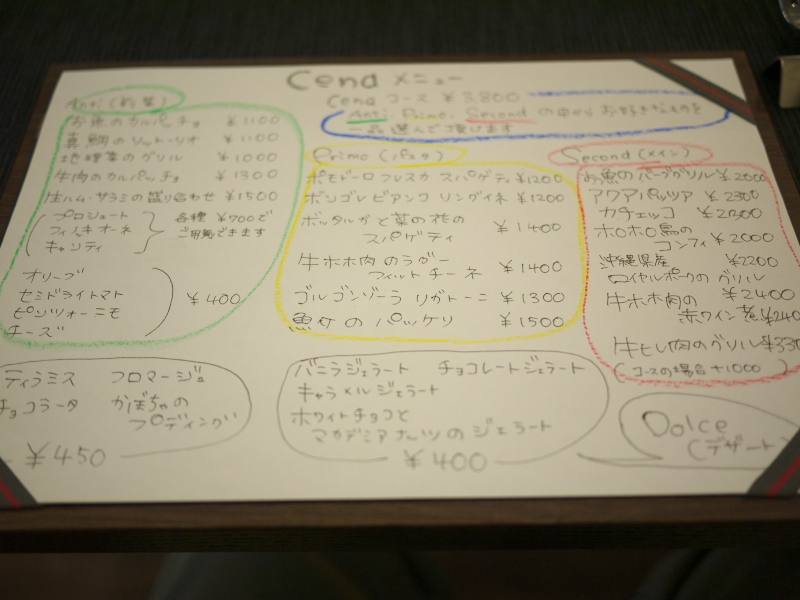 Cena メニュー
Cena コース ¥3,800
Anti, Primo, Second の中からお好きなものを
一品選んで頂けます
Anti (前菜)
お魚のカルパッチョ ¥1100
真鯛のソットーリオ ¥1100
地野菜のグリル ¥1000
牛肉のカルパッチョ ¥1300
生ハム・サラミの盛り合わせ ¥1500
プロシュート
フィノッキオーネ
キャンティ
各種 ¥700で
ご用意できます
オリーブ
セミドライトマト
ピンツィモーニオ
チーズ
¥400
Primo (パスタ)
ポモドーロフレスカ スパゲティ ¥1200
ボンゴレビアンコ リングイネ ¥1200
ボッタルガと菜の花の
スパゲティ ¥1400
牛ホホ肉のラグー
フィットチーネ ¥1400
ゴルゴンゾーラ リガトーニ ¥1300
魚介のパッケリ ¥1500
Second (メイン)
お魚のハーブグリル ¥2000
アクアパッツァ ¥2300
カチュッコ ¥2300
ホロホロ鳥の
コンフィ ¥2000
沖縄県産 ¥2200
ロイヤルポークのグリル
牛ホホ肉の ¥2400
赤ワイン煮 ¥240
牛ヒレ肉のグリル ¥330
(コースの場合+1000)
ティラミス フロマージュ
チョコラータ かぼちゃの
プディング
¥450
バニラジェラート チョコレートジェラート
キャラメルジェラート
ホワイトチョコと
マカデミアナッツのジェラート
¥400
Dolce
(デザート)